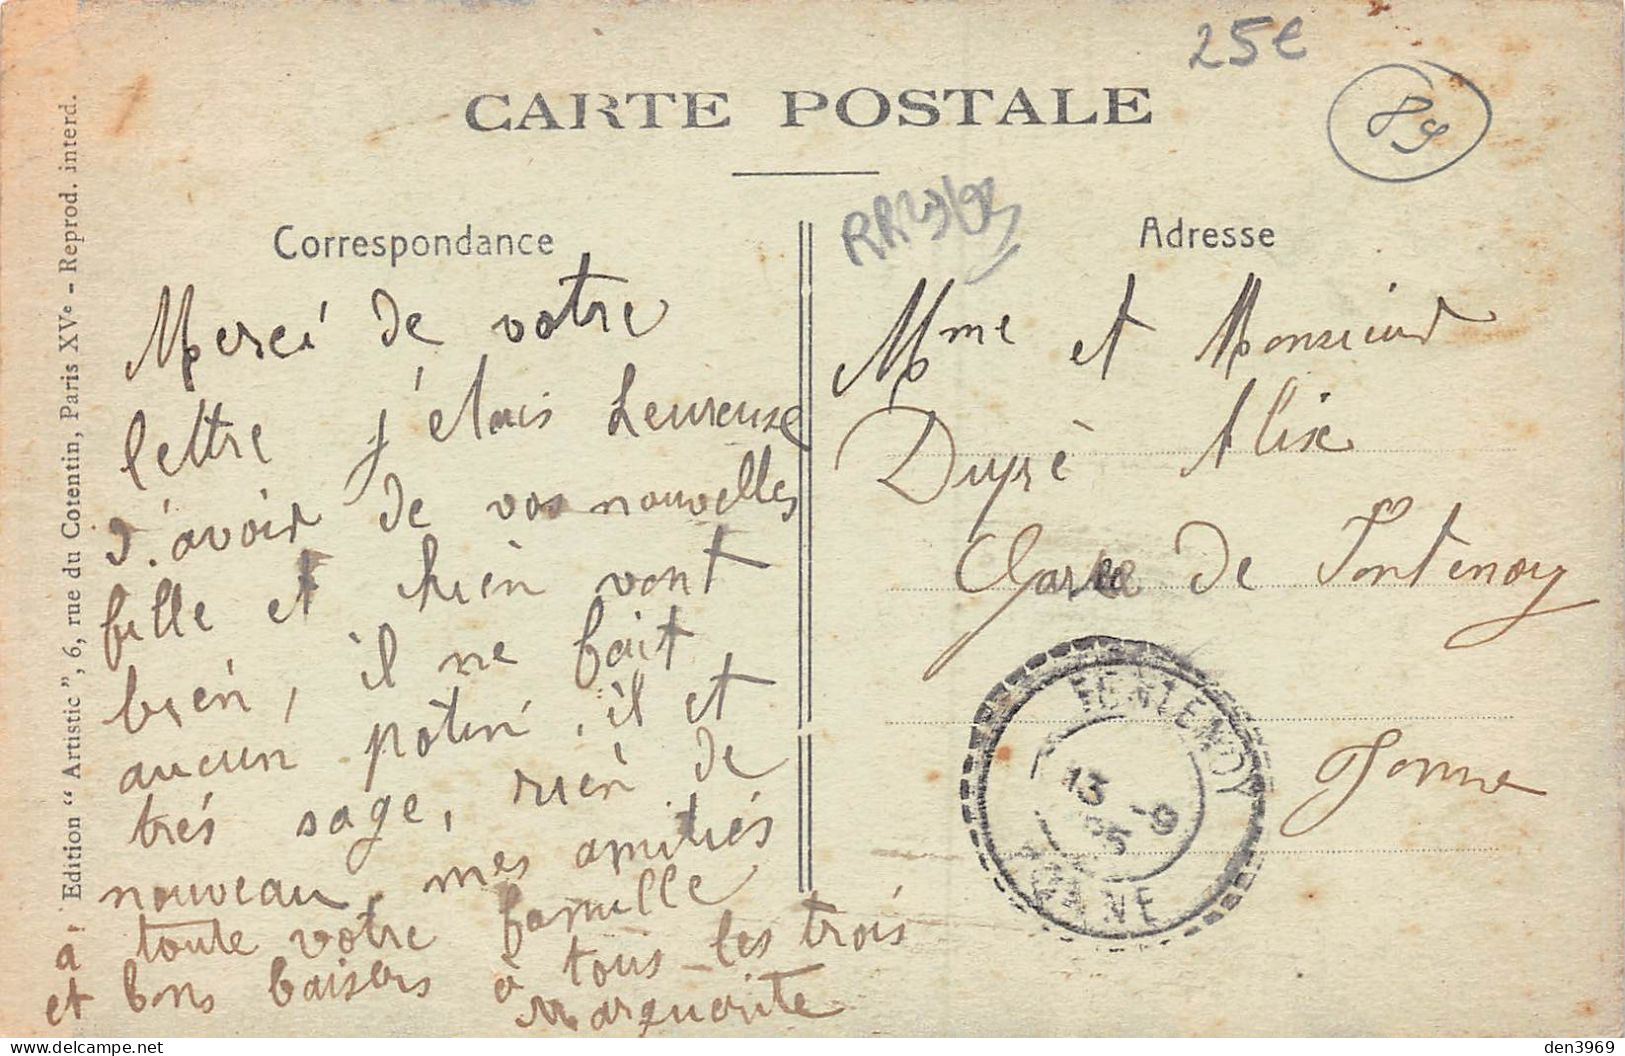 25€
CARTE POSTALE
89
RR23/93
Edition “ Artistic ”, 6, rue du Cotentin, Paris XVe - Reprod. interd.
Correspondance
Merci de votre
lettre j'etais heureuse
d'avoir de vos nouvelles
fille et chien vont
bien, il ne fait
aucun potin, il et
trés sage, rien de
nouveau, mes amitiés
a toute votre famille
et bons baisers à tous les trois
Marguerite
Adresse
Mme et Monsieur
Dupré Alix
Gare de Fontenoy
Yonne
FONTENOY
13 -9
25
YONNE
den3969